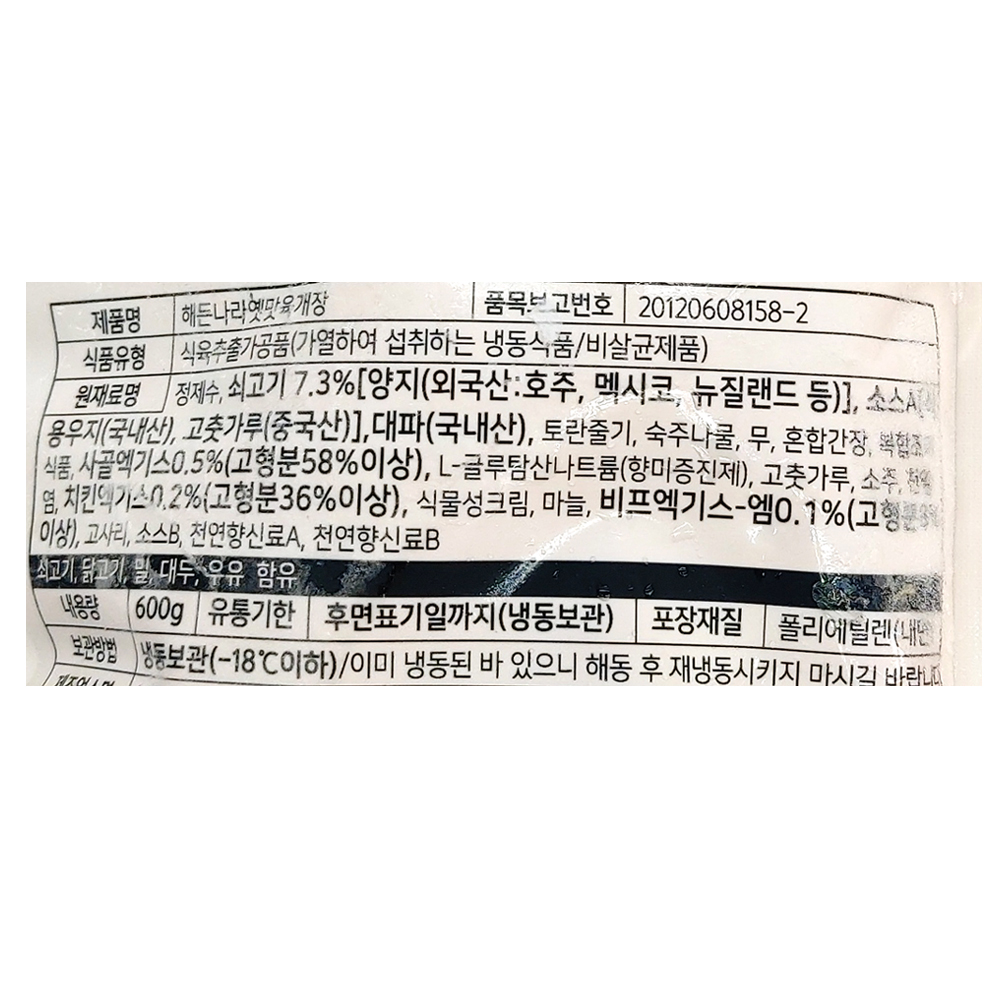 제품명 해든나라옛맛육개장 품목보고번호 20120608158-2
식품유형 식육추출가공품(가열하여 섭취하는 냉동식품/비살균제품)
원재료명 정제수, 쇠고기 7.3%[양지(외국산:호주, 멕시코, 뉴질랜드 등)], 소스A
용우지(국내산), 고춧가루(중국산)],대파(국내산), 토란줄기, 숙주나물, 무, 혼합간장, 복합조
식품, 사골엑기스0.5%(고형분58%이상), L-글루탐산나트륨(향미증진제), 고춧가루, 소주,
염, 치킨엑기스0.2%(고형분36%이상), 식물성크림, 마늘, 비프엑기스-엠0.1%(고형분
이상), 고사리, 소스B, 천연향신료A, 천연향신료B
쇠고기, 닭고기, 밀, 대두, 우유 함유
내용량 600g 유통기한 후면표기일까지(냉동보관) 포장재질 폴리에틸렌(내면
보관방법 냉동보관(-18℃이하)/이미 냉동된 바 있으니 해동 후 재냉동시키지 마시길 바랍니다